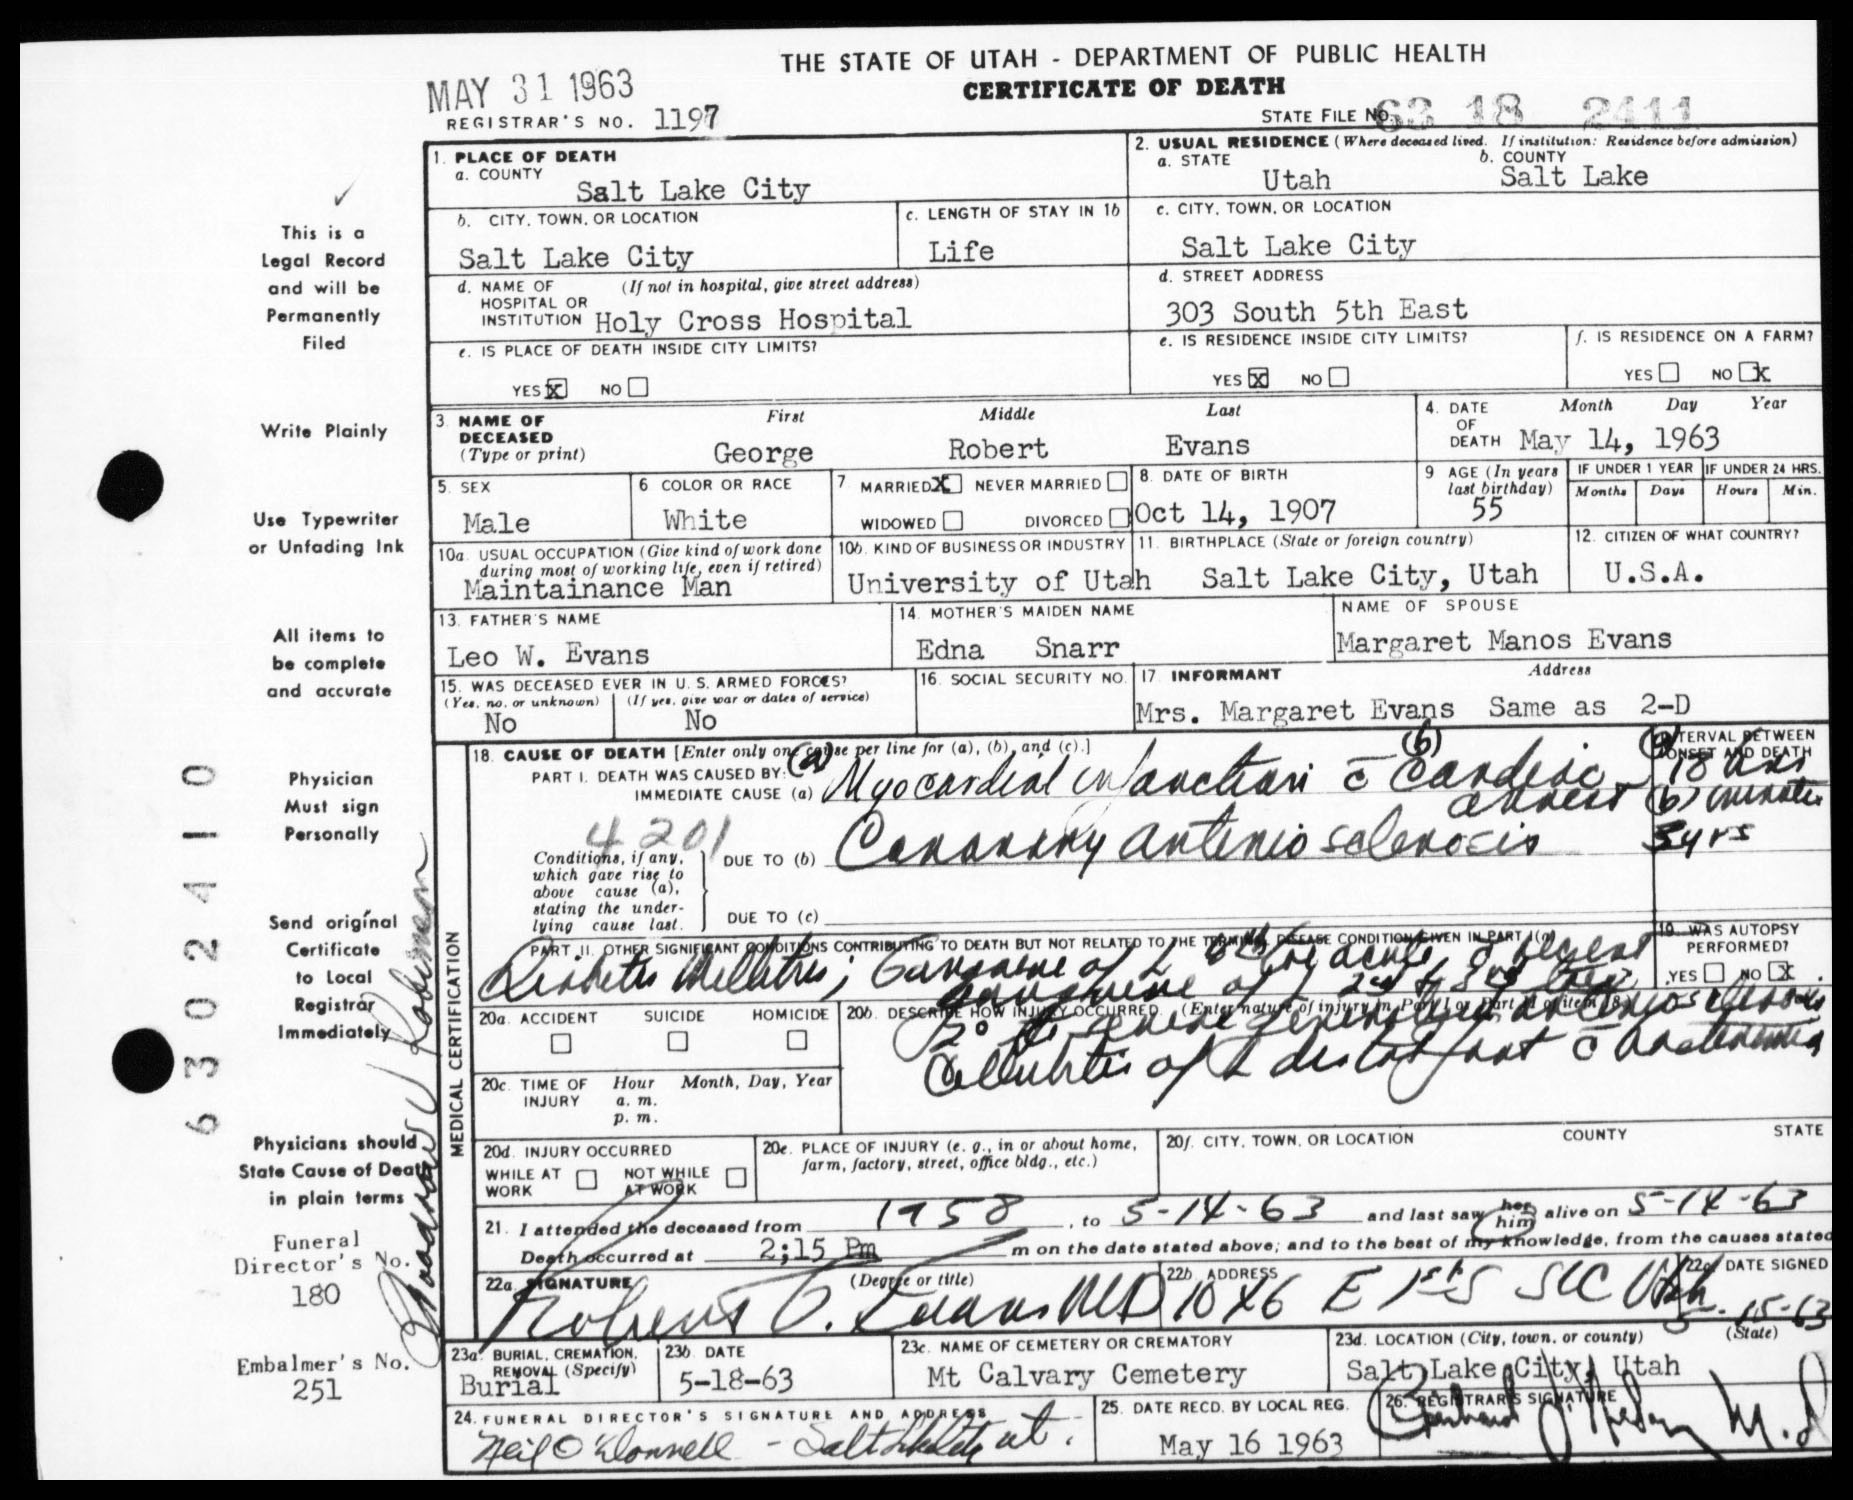 THE STATE OF UTAH - DEPARTMENT OF PUBLIC HEALTH
CERTIFICATE OF DEATH
MAY 31 1963
REGISTRAR'S NO. 1197
STATE FILE NO. 63 18 2411
1. PLACE OF DEATH
a. COUNTY
Salt Lake City
2. USUAL RESIDENCE (Where deceased lived. If institution: Residence before admission)
a. STATE
Utah
b. COUNTY
Salt Lake
b. CITY, TOWN, OR LOCATION
Salt Lake City
c. LENGTH OF STAY IN 1b
Life
c. CITY, TOWN, OR LOCATION
Salt Lake City
d. NAME OF (If not in hospital, give street address)
HOSPITAL OR
INSTITUTION Holy Cross Hospital
d. STREET ADDRESS
303 South 5th East
e. IS PLACE OF DEATH INSIDE CITY LIMITS?
YES X NO
e. IS RESIDENCE INSIDE CITY LIMITS?
YES X NO
f. IS RESIDENCE ON A FARM?
YES NO X
3. NAME OF DECEASED (Type or print)
First Middle Last
George Robert Evans
4. DATE OF DEATH
Month Day Year
May 14, 1963
5. SEX
Male
6 COLOR OR RACE
White
7. MARRIED X NEVER MARRIED
WIDOWED DIVORCED
8. DATE OF BIRTH
Oct 14, 1907
9 AGE (In years last birthday)
55
IF UNDER 1 YEAR
Months Days
IF UNDER 24 HRS.
Hours Min.
10a. USUAL OCCUPATION (Give kind of work done
during most of working life, even if retired)
Maintainance Man
10b. KIND OF BUSINESS OR INDUSTRY
University of Utah
11. BIRTHPLACE (State or foreign country)
Salt Lake City, Utah
12. CITIZEN OF WHAT COUNTRY?
U.S.A.
13. FATHER'S NAME
Leo W. Evans
14. MOTHER'S MAIDEN NAME
Edna Snarr
NAME OF SPOUSE
Margaret Manos Evans
15. WAS DECEASED EVER IN U. S. ARMED FORCES?
(Yes, no, or unknown) (If yes, give war or dates of service)
No No
16. SOCIAL SECURITY NO.
17. INFORMANT Address
Mrs. Margaret Evans Same as 2-D
18. CAUSE OF DEATH [Enter only one cause per line for (a), (b), and (c).]
PART I. DEATH WAS CAUSED BY:
IMMEDIATE CAUSE (a)
(a) Myocardial infarction c̄ (b) Cardiac
arrest
INTERVAL BETWEEN
ONSET AND DEATH
(a) 18 hrs
(b) minutes
4201
Conditions, if any,
which gave rise to
above cause (a),
stating the under-
lying cause last.
DUE TO (b) Coronary arteriosclerosis
5 yrs
DUE TO (c)
PART II. OTHER SIGNIFICANT CONDITIONS CONTRIBUTING TO DEATH BUT NOT RELATED TO THE TERMINAL DISEASE CONDITION GIVEN IN PART I(a)
Diabetes Mellitus; Gangrene of L toe acute, c̄ recent
gangrene of L 2nd & 3rd toes
2° to severe generalized arteriosclerosis
Cellulitis of L distal foot c̄ bacteremia
19. WAS AUTOPSY PERFORMED?
YES NO X
MEDICAL CERTIFICATION
20a. ACCIDENT SUICIDE HOMICIDE
20b. DESCRIBE HOW INJURY OCCURRED. (Enter nature of injury in Part I or Part II of item 18.)
20c. TIME OF INJURY
Hour Month, Day, Year
a. m.
p. m.
20d. INJURY OCCURRED
WHILE AT WORK NOT WHILE AT WORK
20e. PLACE OF INJURY (e. g., in or about home,
farm, factory, street, office bldg., etc.)
20f. CITY, TOWN, OR LOCATION COUNTY STATE
21. I attended the deceased from 1958, to 5-14-63 and last saw her him alive on 5-14-63
Death occurred at 2;15 Pm m on the date stated above; and to the best of my knowledge, from the causes stated
22a. SIGNATURE (Degree or title)
Robert O. Evans MD
22b. ADDRESS
1046 E 1st S SLC Utah
22c. DATE SIGNED
5-15-63
23a. BURIAL, CREMATION, REMOVAL (Specify)
Burial
23b. DATE
5-18-63
23c. NAME OF CEMETERY OR CREMATORY
Mt Calvary Cemetery
23d. LOCATION (City, town, or county) (State)
Salt Lake City, Utah
24. FUNERAL DIRECTOR'S SIGNATURE AND ADDRESS
Neil O'Donnell - Salt Lake City ut.
25. DATE RECD. BY LOCAL REG.
May 16 1963
26. REGISTRAR'S SIGNATURE
M.D
This is a
Legal Record
and will be
Permanently
Filed
Write Plainly
Use Typewriter
or Unfading Ink
All items to
be complete
and accurate
Physician
Must sign
Personally
Send original
Certificate
to Local
Registrar
Immediately
Physicians should
State Cause of Death
in plain terms
Funeral
Director's No.
180
Embalmer's No.
251
63 02410
Robinson